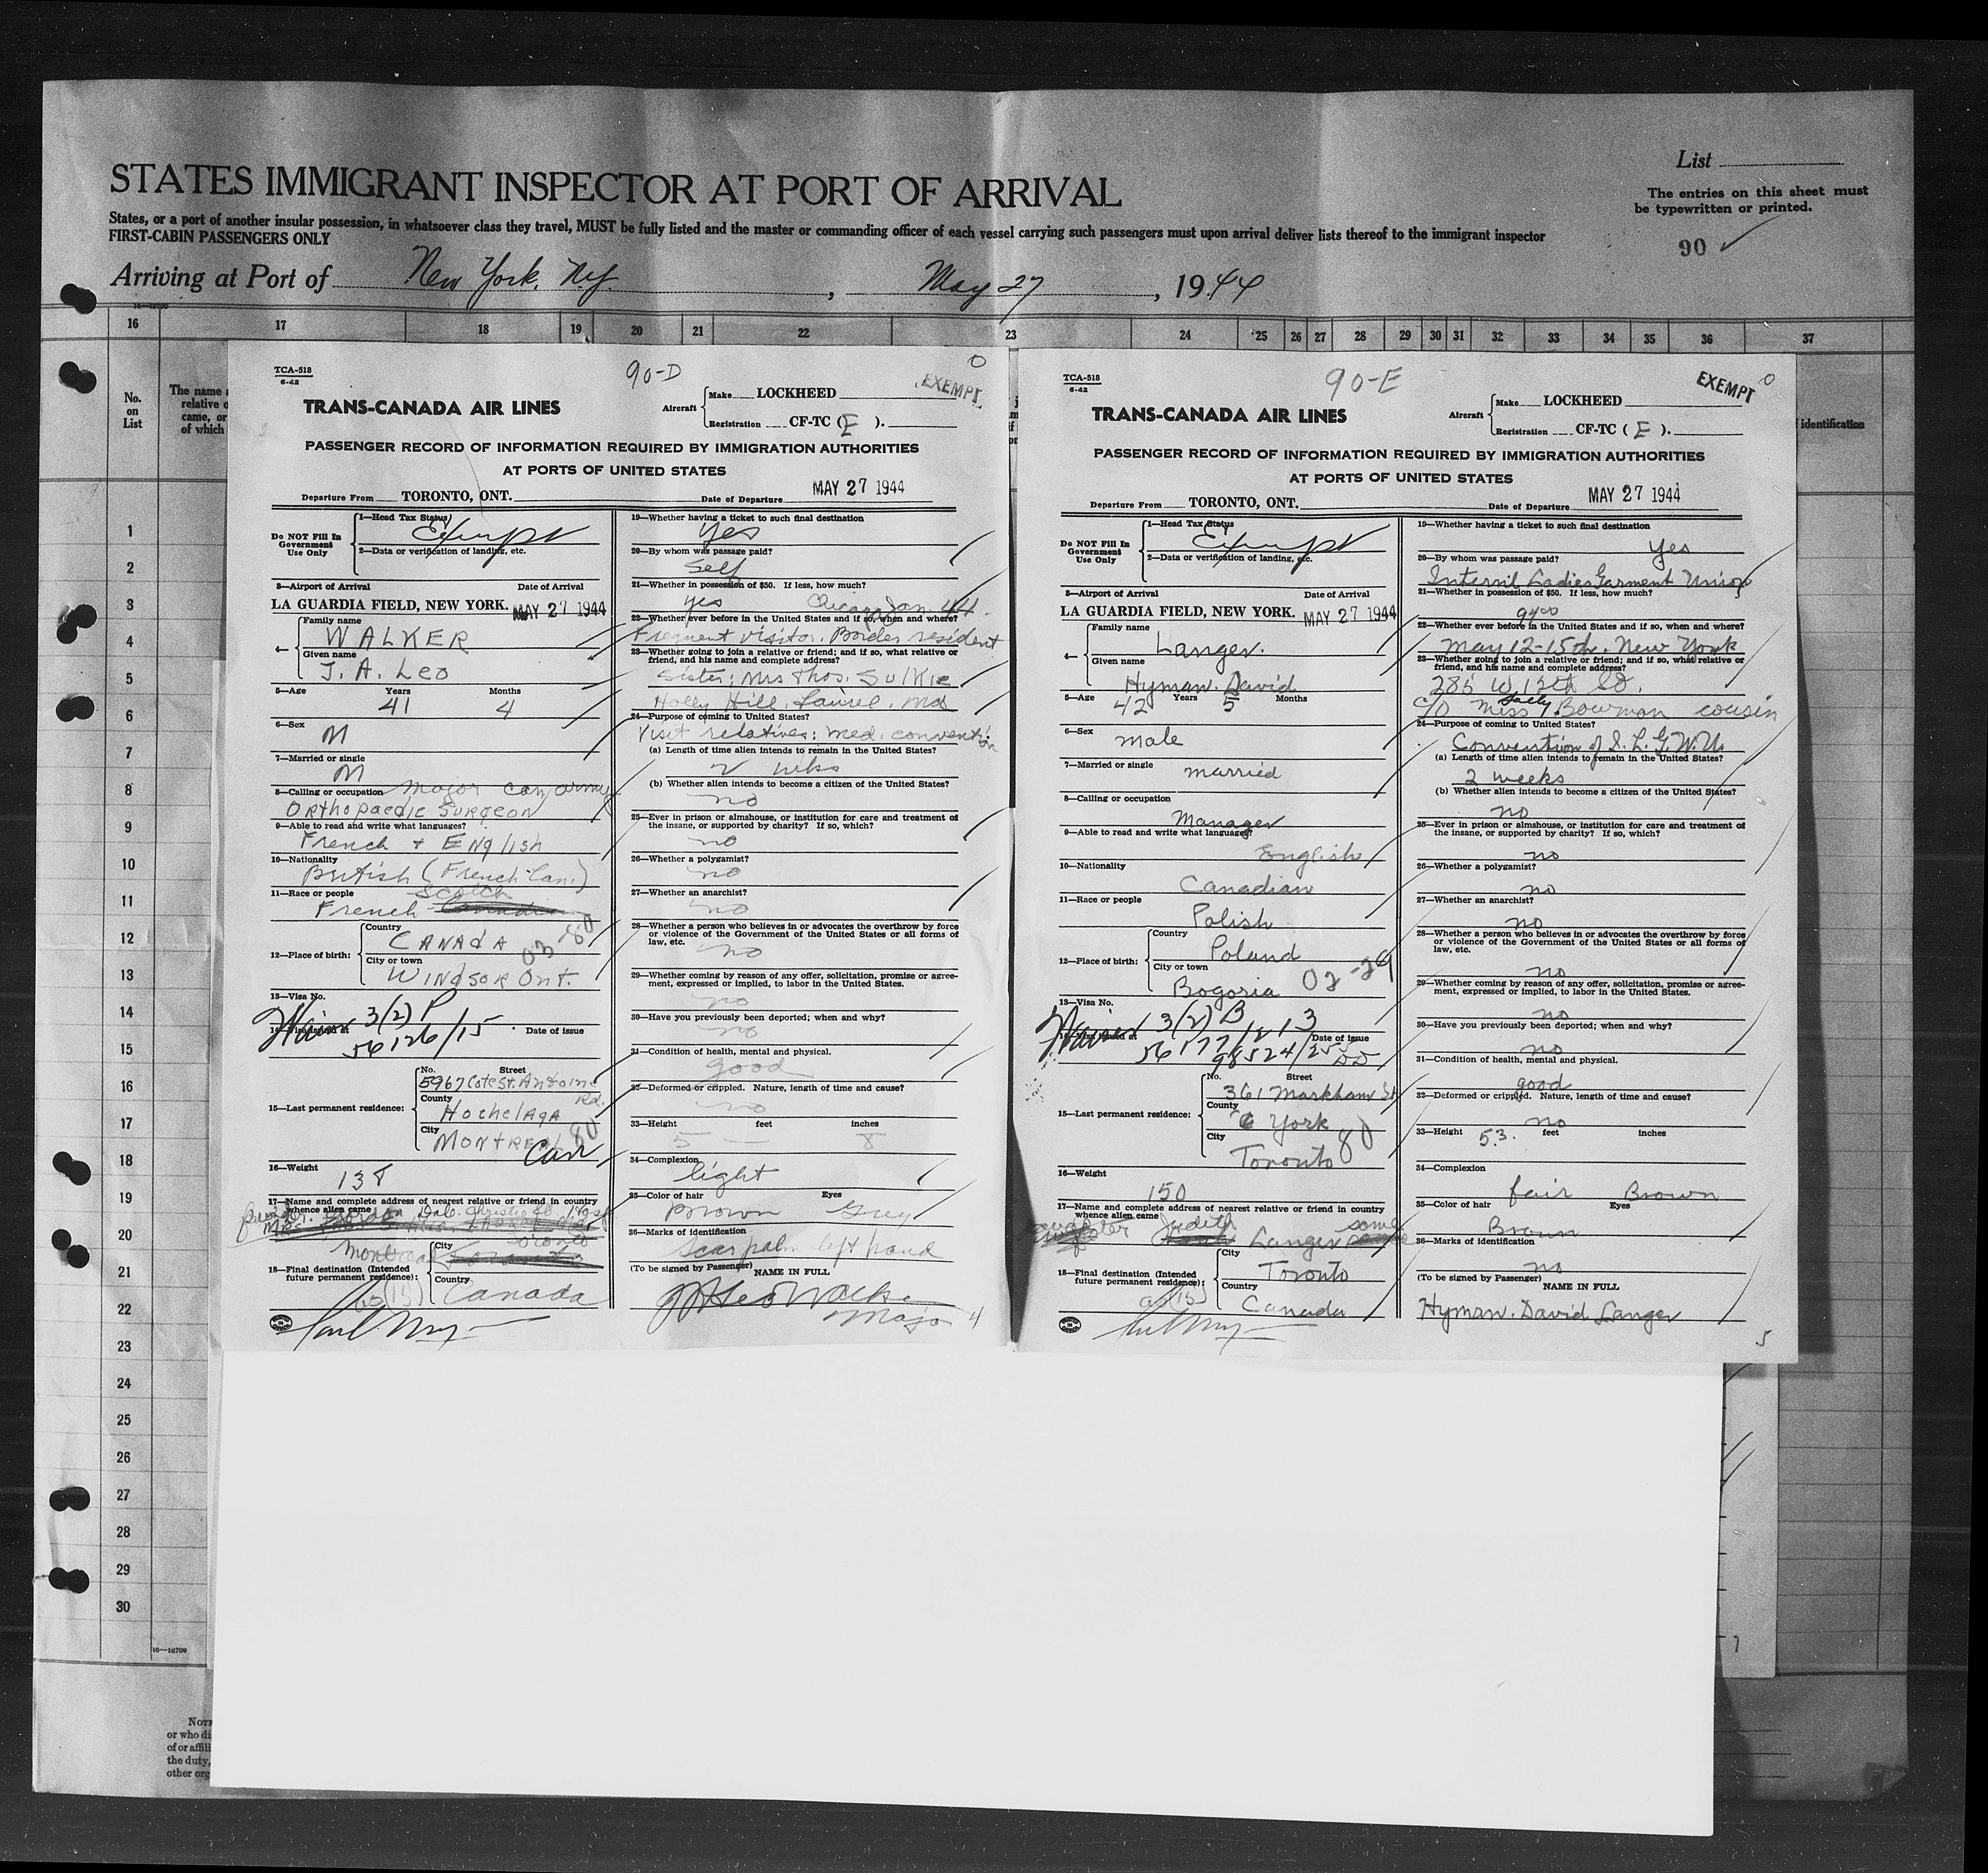 List
The entries on this sheet must
be typewritten or printed.
90
STATES IMMIGRANT INSPECTOR AT PORT OF ARRIVAL
States, or a port of another insular possession, in whatsoever class they travel, MUST be fully listed and the master or commanding officer of each vessel carrying such passengers must upon arrival deliver lists thereof to the immigrant inspector
FIRST-CABIN PASSENGERS ONLY
Arriving at Port of New York, N.Y., May 27, 1944
16 17 18 19 20 21 22 23 24 25 26 27 28 29 30 31 32 33 34 35 36 37
No.
on
List
The name
relative o
came, or
of which
identification
1
2
3
4
5
6
7
8
9
10
11
12
13
14
15
16
17
18
19
20
21
22
23
24
25
26
27
28
29
30
16—18709
NOTE
or who di
of or affili
the duty,
other org
TCA-518
6-42
90-D
EXEMPT
TRANS-CANADA AIR LINES
Aircraft
Make LOCKHEED
Registration CF-TC (E).
PASSENGER RECORD OF INFORMATION REQUIRED BY IMMIGRATION AUTHORITIES
AT PORTS OF UNITED STATES
Departure From TORONTO, ONT. Date of Departure MAY 27 1944
Do NOT Fill In
Government
Use Only
1—Head Tax Status
Exempt
2—Data or verification of landing, etc.
3—Airport of Arrival Date of Arrival
LA GUARDIA FIELD, NEW YORK. MAY 27 1944
4—
Family name
WALKER
Given name
J. A. Leo
5—Age Years Months
41 4
6—Sex
M
7—Married or single
M
8—Calling or occupation Major Can. Army
Orthopaedic Surgeon
9—Able to read and write what languages?
French + English
10—Nationality
British (French-Can.)
11—Race or people Scotch
French
12—Place of birth:
Country
CANADA
03-80
City or town
WINDSOR Ont.
13—Visa No.
3(2) P
14—Visa issued at Date of issue
56126/15
15—Last permanent residence:
No. Street
5967 Cote St. Antoine
Rd.
County
Hochelaga
City
Montreal 80
Can
16—Weight
138
17—Name and complete address of nearest relative or friend in country
whence alien came
Gordon Dale Christie St. Hosp
Toronto
18—Final destination (Intended
future permanent residence):
City
Montreal
Country
Canada
19—Whether having a ticket to such final destination
Yes
20—By whom was passage paid?
Self
21—Whether in possession of $50. If less, how much?
yes Chicago Jan. 44.
22—Whether ever before in the United States and if so, when and where?
Frequent visitor. Border resident
23—Whether going to join a relative or friend; and if so, what relative or
friend, and his name and complete address?
Sister: Mrs Thos. Sulkie
Holly Hill, Laurel, Md
24—Purpose of coming to United States?
Visit relatives: med. convention
(a) Length of time alien intends to remain in the United States?
2 wks
(b) Whether alien intends to become a citizen of the United States?
no
25—Ever in prison or almshouse, or institution for care and treatment of
the insane, or supported by charity? If so, which?
no
26—Whether a polygamist?
no
27—Whether an anarchist?
no
28—Whether a person who believes in or advocates the overthrow by force
or violence of the Government of the United States or all forms of
law, etc.
no
29—Whether coming by reason of any offer, solicitation, promise or agree-
ment, expressed or implied, to labor in the United States.
no
30—Have you previously been deported; when and why?
no
31—Condition of health, mental and physical.
good
32—Deformed or crippled. Nature, length of time and cause?
no
33—Height feet inches
5 — 8
34—Complexion
light
35—Color of hair Eyes
Brown Grey
36—Marks of identification
Scar palm left hand
(To be signed by Passenger) NAME IN FULL
JA Leo Walker
Major
4
TCA-518
6-42
90-E
EXEMPT
TRANS-CANADA AIR LINES
Aircraft
Make LOCKHEED
Registration CF-TC (E).
PASSENGER RECORD OF INFORMATION REQUIRED BY IMMIGRATION AUTHORITIES
AT PORTS OF UNITED STATES
Departure From TORONTO, ONT. Date of Departure MAY 27 1944
Do NOT Fill In
Government
Use Only
1—Head Tax Status
Exempt
2—Data or verification of landing, etc.
3—Airport of Arrival Date of Arrival
LA GUARDIA FIELD, NEW YORK. MAY 27 1944
4—
Family name
Langer.
Given name
Hyman. David
5—Age Years Months
42 5
6—Sex
male
7—Married or single
married
8—Calling or occupation
Manager
9—Able to read and write what languages?
English
10—Nationality
Canadian
11—Race or people
Polish
12—Place of birth:
Country
Poland
City or town
Bogoria 02-29
13—Visa No.
3(2) B
14—Visa issued at Date of issue
56177/213
98524/255
15—Last permanent residence:
No. Street
361 Markham St
County
York
City
Toronto 80
16—Weight
150
17—Name and complete address of nearest relative or friend in country
whence alien came
daughter Judith Langer same
18—Final destination (Intended
future permanent residence):
City
Toronto
Country
Canada
19—Whether having a ticket to such final destination
yes
20—By whom was passage paid?
Internl Ladies Garment Union
21—Whether in possession of $50. If less, how much?
22—Whether ever before in the United States and if so, when and where?
May 12-15th. New York
23—Whether going to join a relative or friend; and if so, what relative or
friend, and his name and complete address?
285 W. 12th St.
c/o Miss Sally Bowman cousin
24—Purpose of coming to United States?
Convention of I. L. G. W. U.
(a) Length of time alien intends to remain in the United States?
2 weeks
(b) Whether alien intends to become a citizen of the United States?
no
25—Ever in prison or almshouse, or institution for care and treatment of
the insane, or supported by charity? If so, which?
no
26—Whether a polygamist?
no
27—Whether an anarchist?
no
28—Whether a person who believes in or advocates the overthrow by force
or violence of the Government of the United States or all forms of
law, etc.
no
29—Whether coming by reason of any offer, solicitation, promise or agree-
ment, expressed or implied, to labor in the United States.
no
30—Have you previously been deported; when and why?
no
31—Condition of health, mental and physical.
good
32—Deformed or crippled. Nature, length of time and cause?
no
33—Height 5.3. feet inches
34—Complexion
fair Brown
35—Color of hair Eyes
Brown
36—Marks of identification
no
(To be signed by Passenger) NAME IN FULL
Hyman. David Langer
5